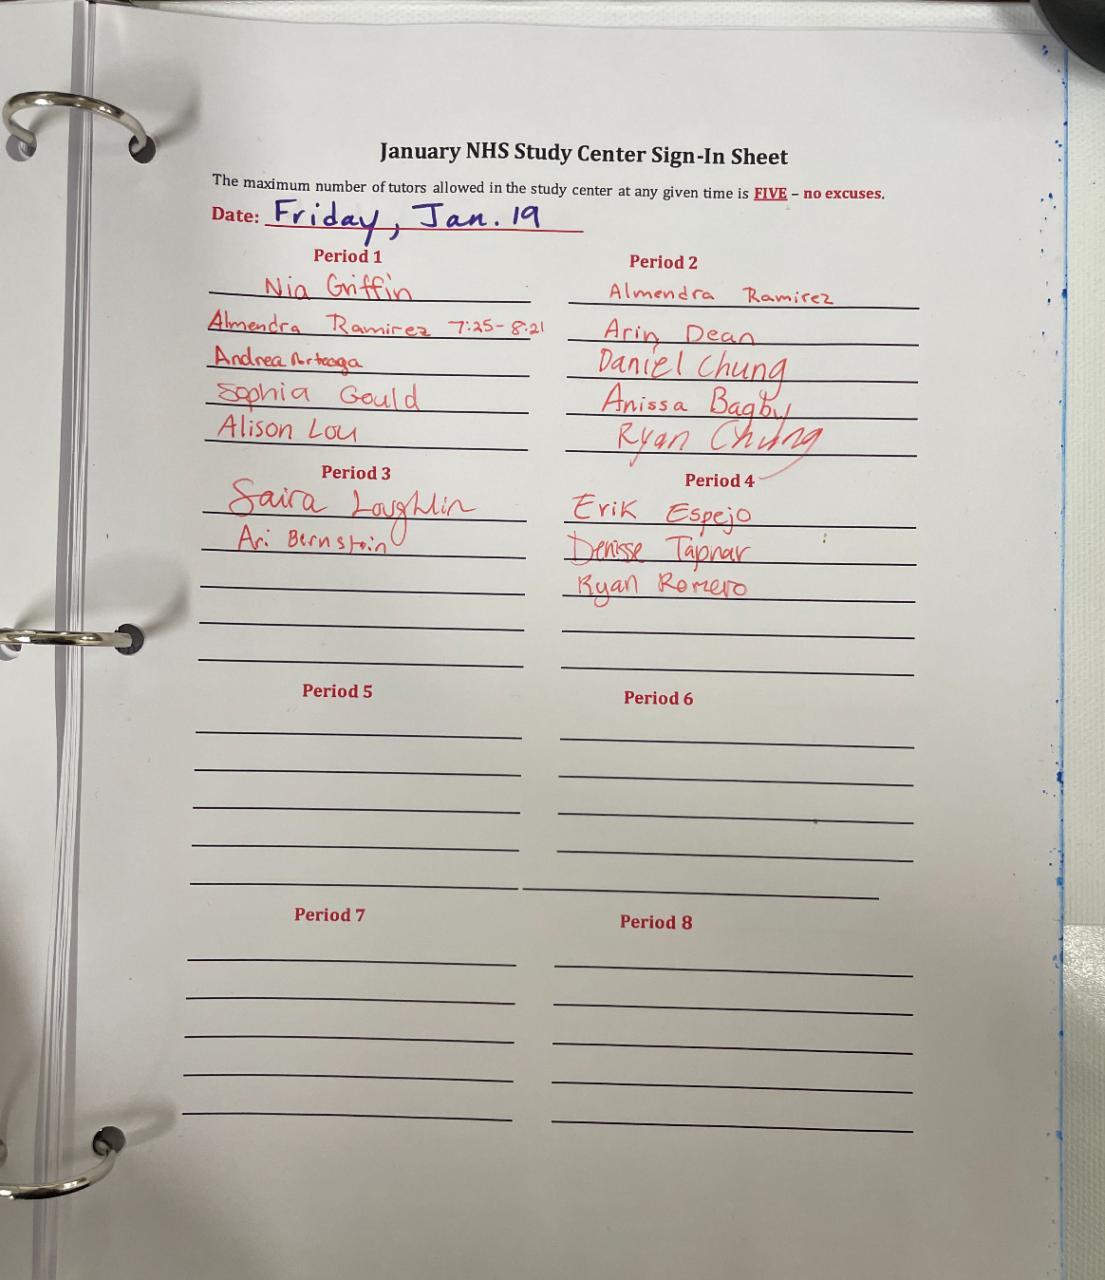 January NHS Study Center Sign-In Sheet
The maximum number of tutors allowed in the study center at any given time is FIVE – no excuses.
Date: Friday, Jan. 19
Period 1
Nia Griffin
Almendra Ramirez 7:25-8:21
Andrea Arteaga
Sophia Gould
Alison Lou
Period 2
Almendra Ramirez
Arin Dean
Daniel Chung
Anissa Bagby
Ryan Chung
Period 3
Saira Loughlin
Ari Bernstein
Period 4
Erik Espejo
Denisse
Ryan Romero
Period 5
Period 6
Period 7
Period 8